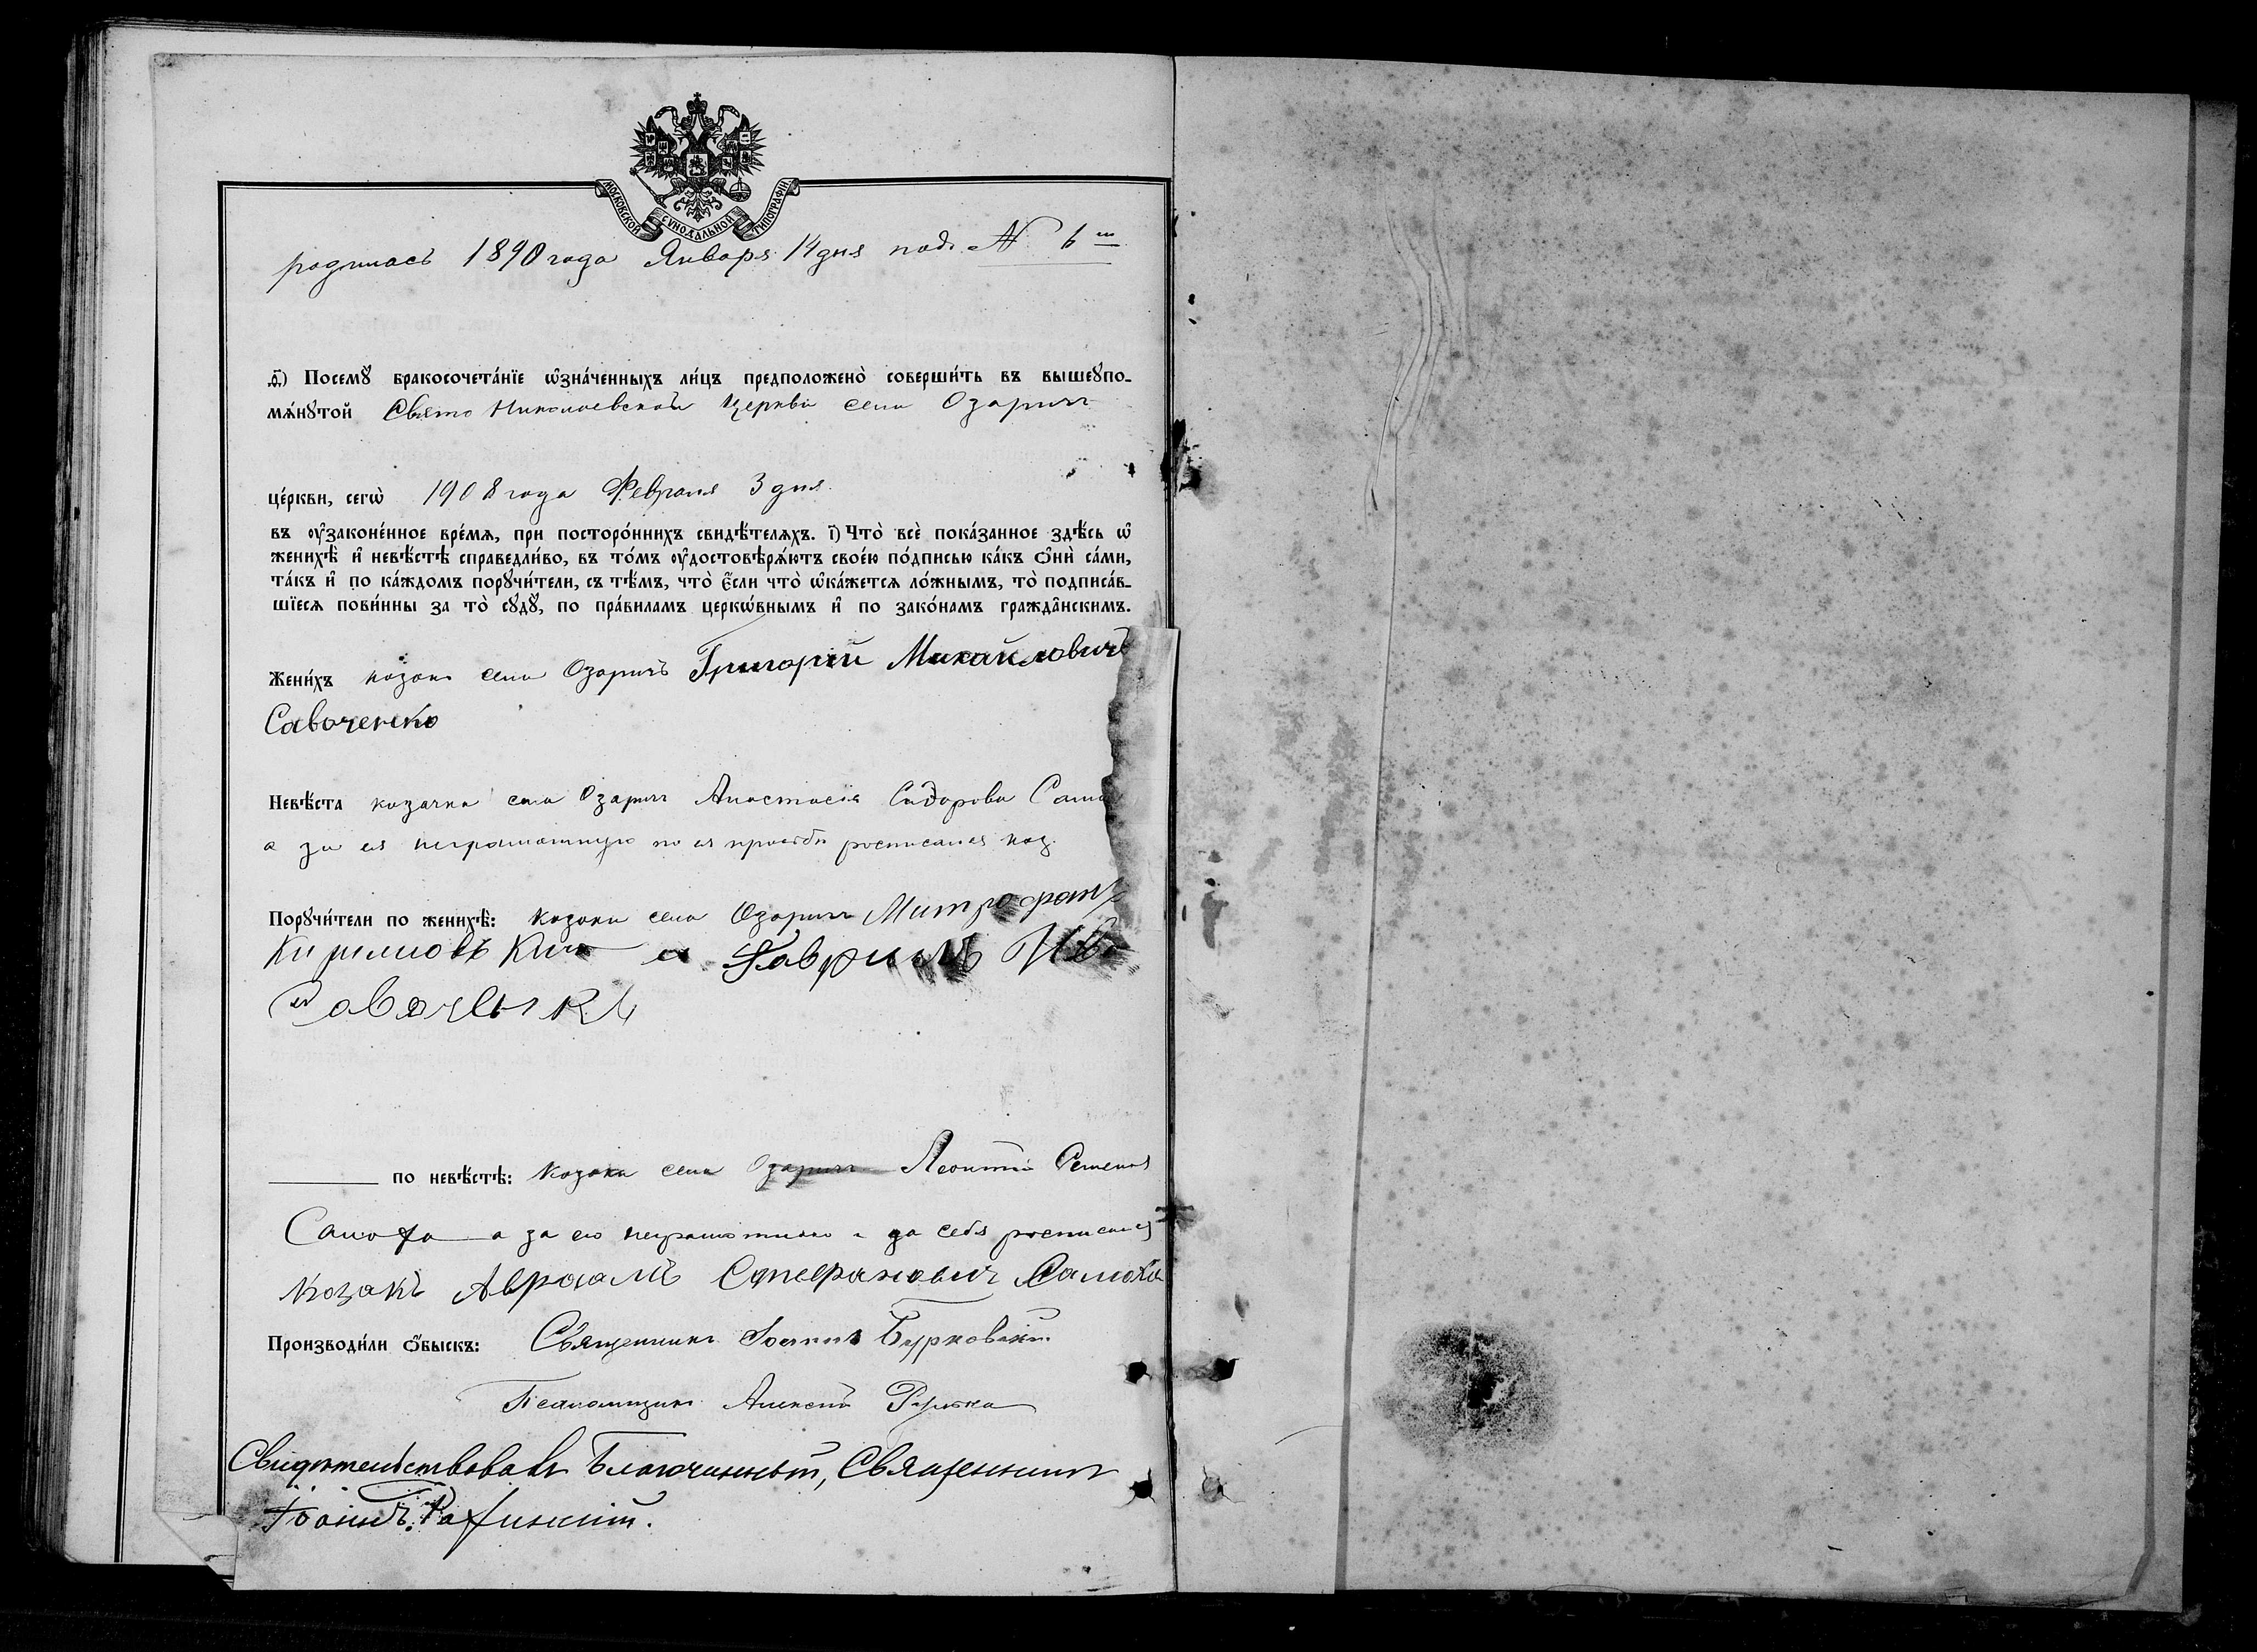 МОСКОВСКОЙ СѴНОДАЛЬНОЙ ТИПОГРАФІИ
родилась 1890 года Января 14 дня подъ № 6 м
ѳ҃) Посемꙋ̀ бракосочета́нїе ѡ҆зна́ченныхъ ли́цъ предположено̀ соверши́ть въ вышеꙋпо-
мѧ́нꙋтой Свято Николаевской Церкви села Озаричъ
це́ркви, сегѡ̀ 1908 года Февраля 3 дня
въ ᲂу҆законе́нное вре́мѧ, при посторо́ннихъ свидѣ́телѧхъ. і҃) Что̀ всѐ пока́занное здѣ́сь ѡ҆
женихѣ̀ и҆ невѣ́стѣ справедли́во, въ то́мъ ᲂу҆достовѣрѧ́ютъ свое́ю по́дписью ка́къ ѻ҆нѝ са́ми,
та́къ и҆ по ка́ждомъ порꙋчи́тели, съ тѣ́мъ, что̀ є҆́сли что̀ ѡ҆ка́жетсѧ ло́жнымъ, то̀ подписа́в-
шїесѧ пови́нны за то̀ сꙋдꙋ̀, по пра́виламъ церкѡ́внымъ и҆ по зако́намъ гражда̑нскимъ.
Жени́хъ козакъ села Озаричъ Григорий Михайловичъ
Савоченко
Невѣ́ста козачка села Озаричъ Анастасія Сидорова
а за ея неграмотную по ея просьбѣ росписался коз.
Порꙋчи́тели по женихѣ̀: козаки села Озаричъ Митрофанъ
Кириловъ и Гавриилъ
по невѣ́стѣ: козаки села Озаричъ Леонтій Семенов
Самоха а за его неграмотнаго и за себя росписался
козакъ Авраамъ Стефановичъ Самоха
Производи́ли ѻ҆́быскъ: Священникъ Іоаннъ Бурковскій
Псаломщикъ Алексѣй
Свидѣтельствовалъ Благочинный, Священникъ
Іоаннъ